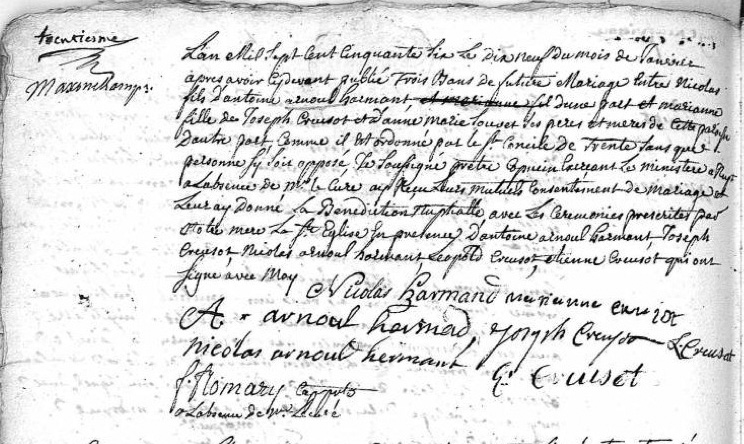 trentieme
Maxonchamp :
L'an Mil Sept Cent Cinquante Six Le dix neuf du mois de Janvier
apres avoir cydevant publié Trois Bans de future Mariage Entre Nicolas
fils d'antoine arnoul harmant et marianne fil d'une part et marianne
fille de Joseph Creusot et d'anne marie Louvet ses peres et meres de cette paroisse
D'autre part Comme il Est ordonné par le St. Concile De Trente sans que
personne s'y soit opposé Je soussigné pretre Capucin Exerçant Le ministere a Rupt
a L'absence de Mr. le Curé ay Reçu Leurs mutuels Consentement de mariage et
Leur ay Donné La Benediction Nuptialle avec Les Ceremonies prescrites par
Notre mere La Ste. Eglise En presence D'antoine arnoul harmant, Joseph
Creusot, Nicolas arnoul harmant, Leopold Creusot, etienne Creusot qui ont
signé avec Moy
Nicolas harmand marianne
A arnoul hermad Joseph Creusot L Creusot
nicolas arnoul hermant E Creusot
f. Romary
a Labsence de Mr. Le curé